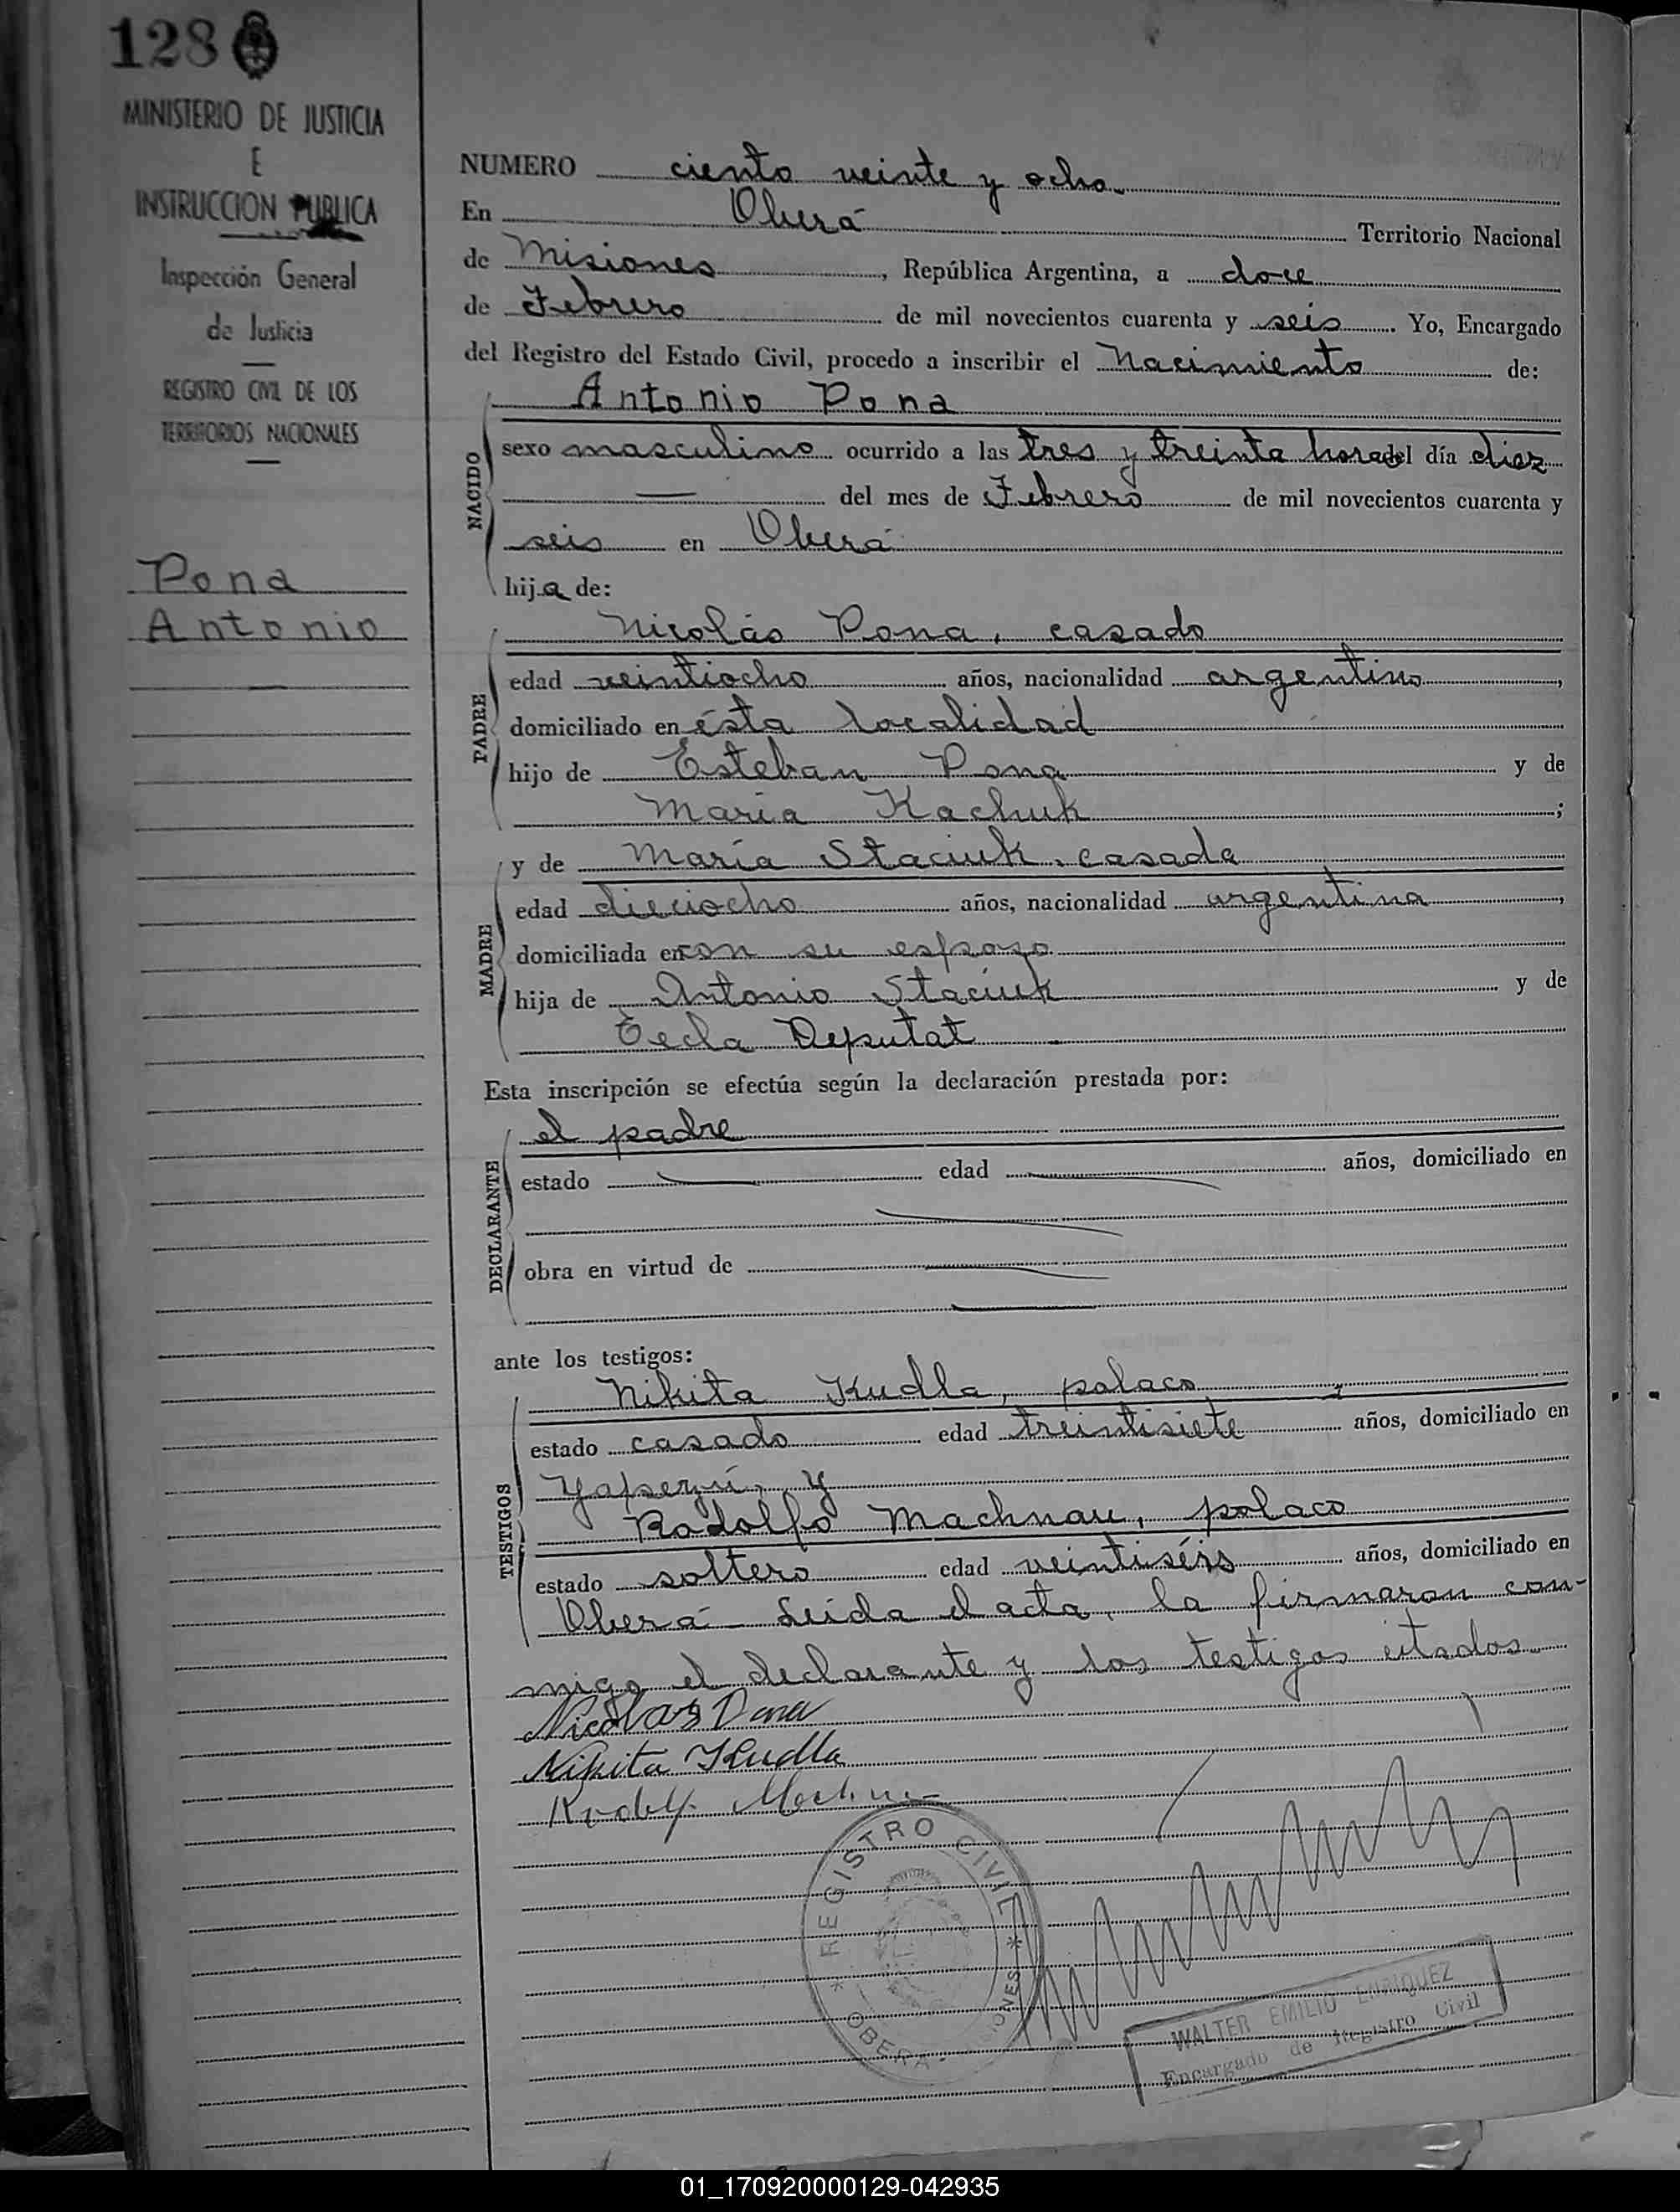 128
MINISTERIO DE JUSTICIA
E
INSTRUCCION PUBLICA
Inspección General
de Justicia
REGISTRO CIVIL DE LOS
TERRITORIOS NACIONALES
Pona
Antonio
NUMERO ciento veinte y ocho
En Oberá Territorio Nacional
de Misiones, República Argentina, a doce
de Febrero de mil novecientos cuarenta y seis. Yo, Encargado
del Registro del Estado Civil, procedo a inscribir el Nacimiento de:
NACIDO
Antonio Pona
sexo masculino ocurrido a las tres y treinta horas del día diez
— del mes de Febrero de mil novecientos cuarenta y
seis en Oberá
hijo de:
PADRE
Nicolás Pona, casado
edad veintiocho años, nacionalidad argentino,
domiciliado en ésta localidad
hijo de Esteban Pona y de
Maria Kachuk;
MADRE
y de María Staciuk, casada
edad dieciocho años, nacionalidad argentina,
domiciliada en con su esposo
hija de Antonio Staciuk y de
Tecla Deputat
Esta inscripción se efectúa según la declaración prestada por:
DECLARANTE
el padre
estado — edad — años, domiciliado en
obra en virtud de —
ante los testigos:
TESTIGOS
Nikita Kudla, polaco,
estado casado edad treintisiete años, domiciliado en
Yapeyú, y
Rodolfo Machnau, polaco
estado soltero edad veintiséis años, domiciliado en
Oberá - Leída el acta, la firmaron con-
migo el declarante y los testigos citados
Nicolas Pona
Nikita Kudla
Rudolf
REGISTRO CIVIL
OBERA - MISIONES
WALTER EMILIO ENRIQUEZ
Encargado de Registro Civil
01_170920000129-042935